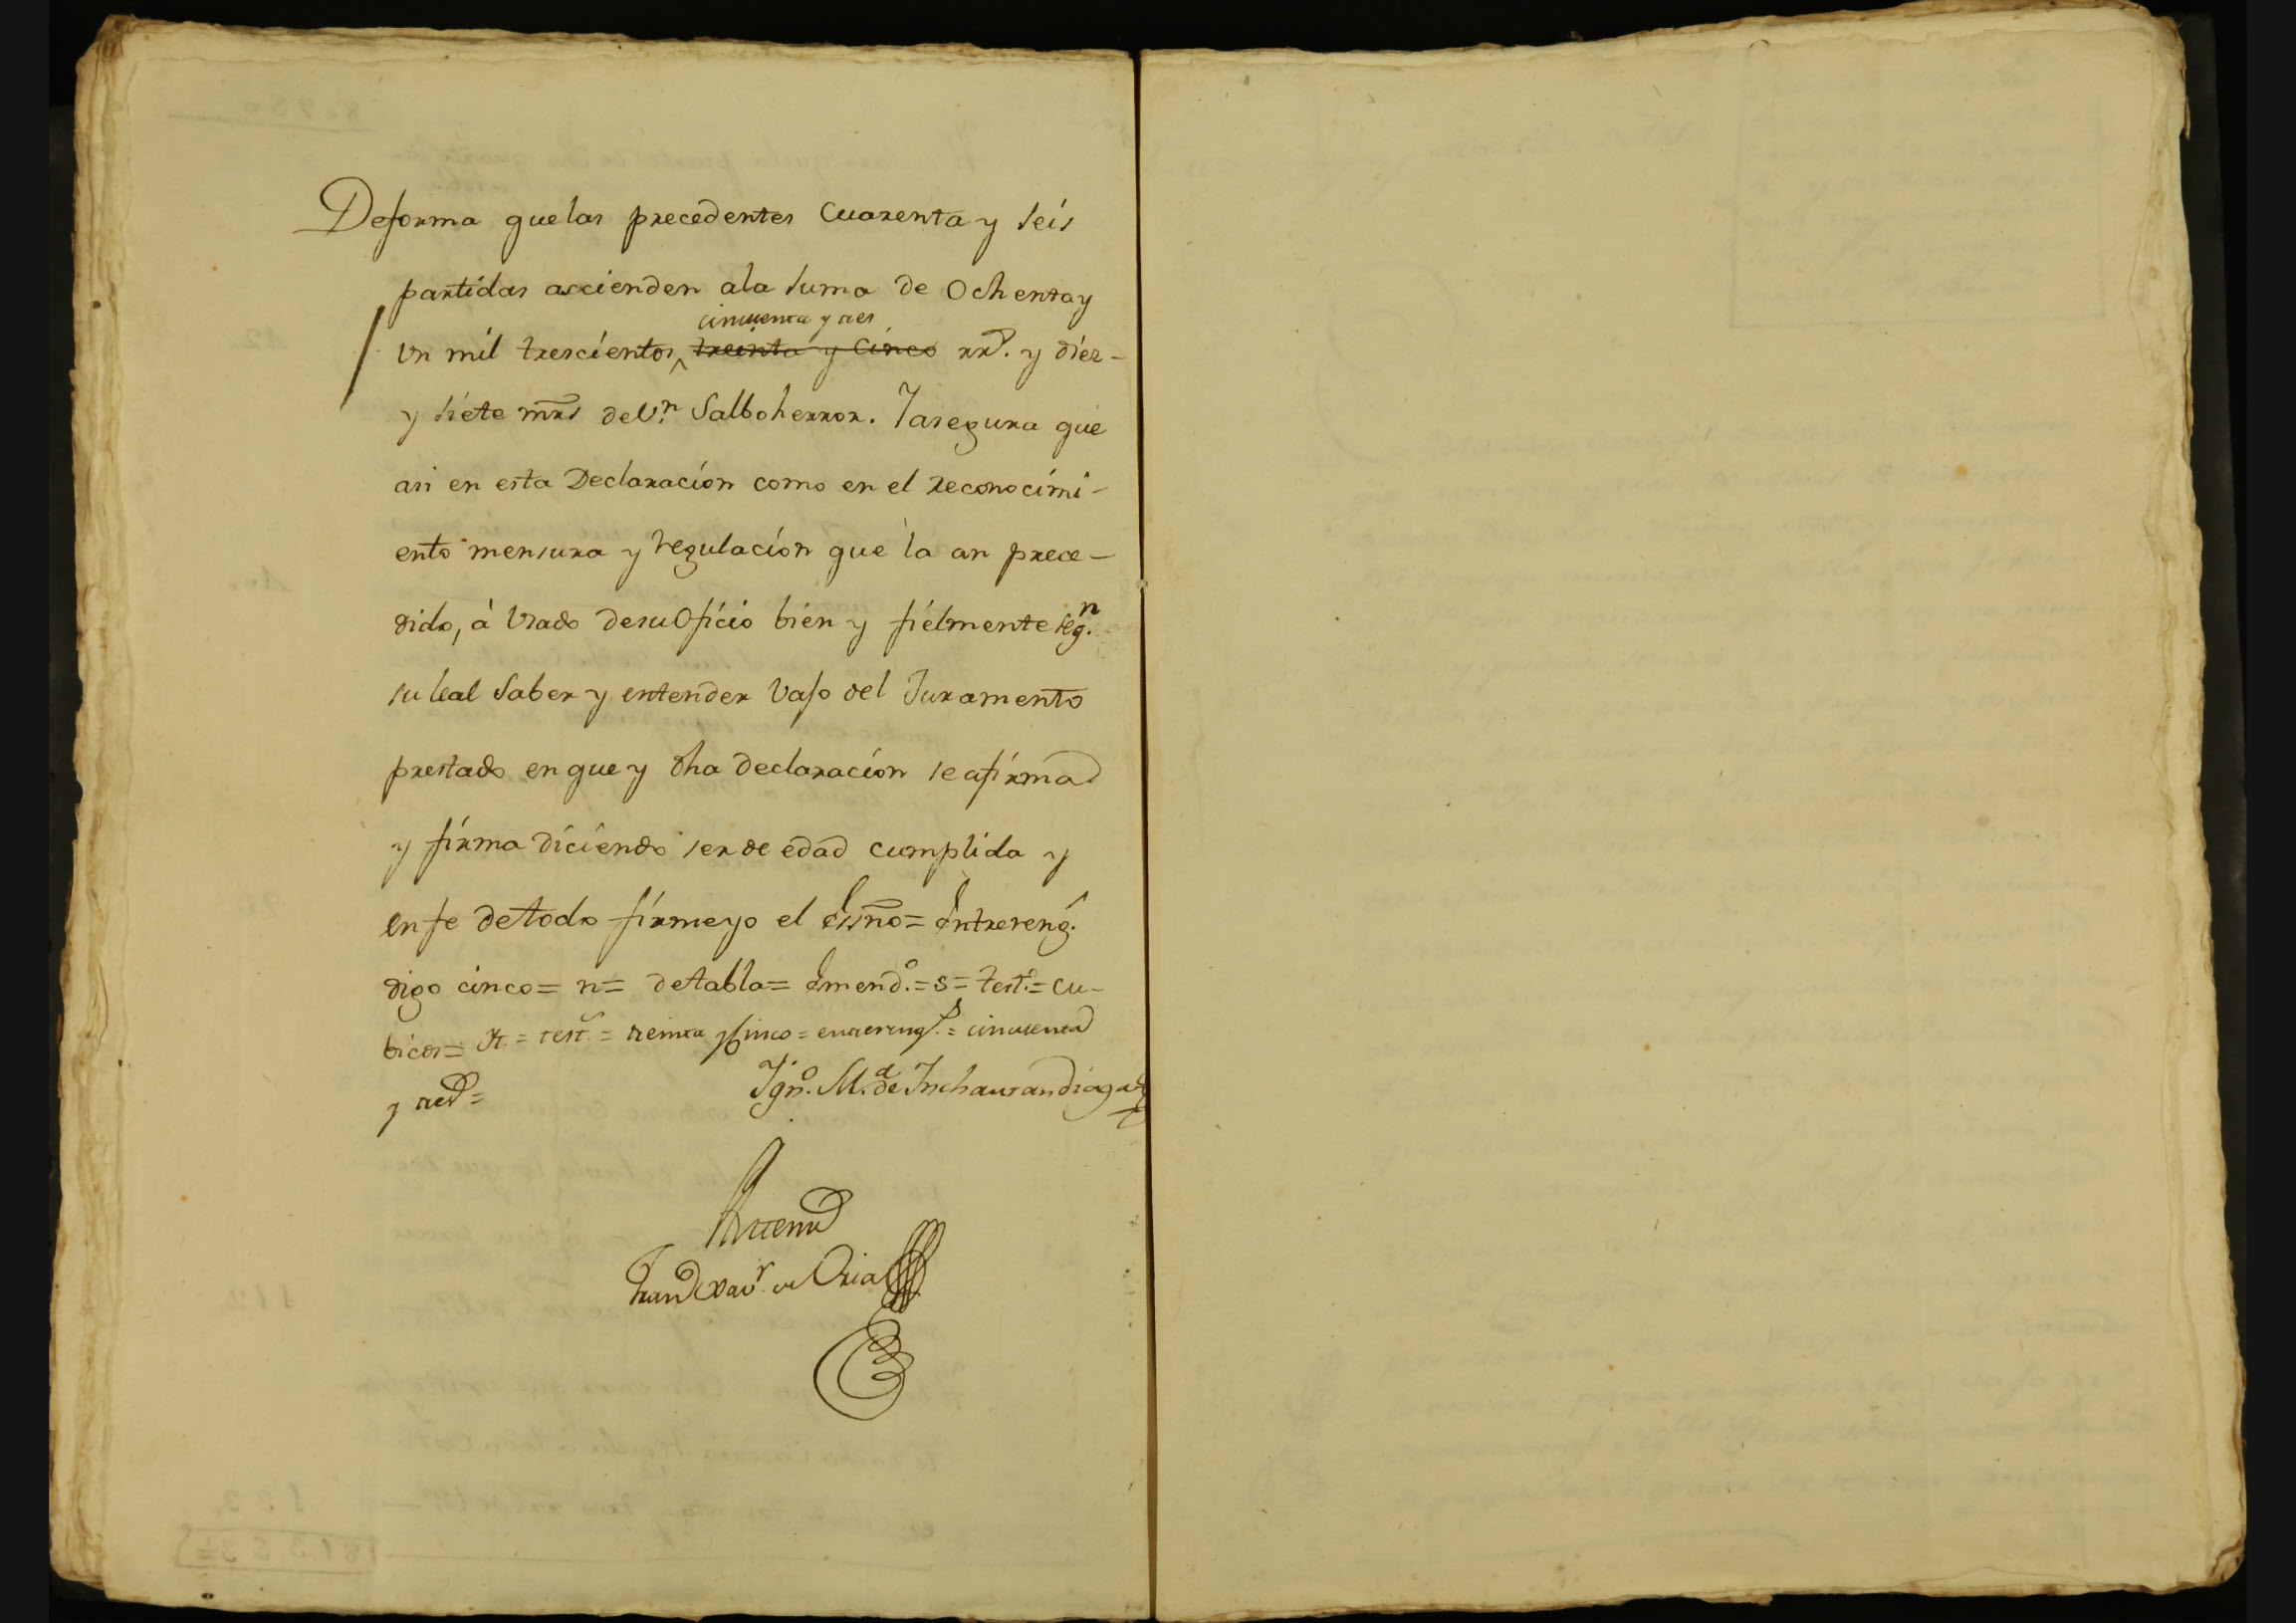 Deforma que las precedentes Cuarenta y seis
partidas ascienden ala suma de Ochenta y
cincuenta y tres
Un mil trescientos, treinta y Cinco rrs. y diez-
y siete mrs de Vn. Salbo herror. Y asegura que
asi en esta Declaracion como en el reconocimi-
ento mensura y regulacion que la an prece-
dido, á Usado de su Oficio bien y fielmente segn.
su leal Saber y entender Vajo del Juramento
prestado en que y dha declaracion se afirma
y firma diciendo ser de edad cumplida y
en fe de todo firme yo el Essno = Entrereng.
digo cinco = n = de tabla = Emendo. = s = test. = cu-
bicos = test. = treinta y cinco = entrereng. = cincuenta
y tres =
Igno. Ma. de Inchaurandiaga
Ante mi
Franco Xavr. de Oria